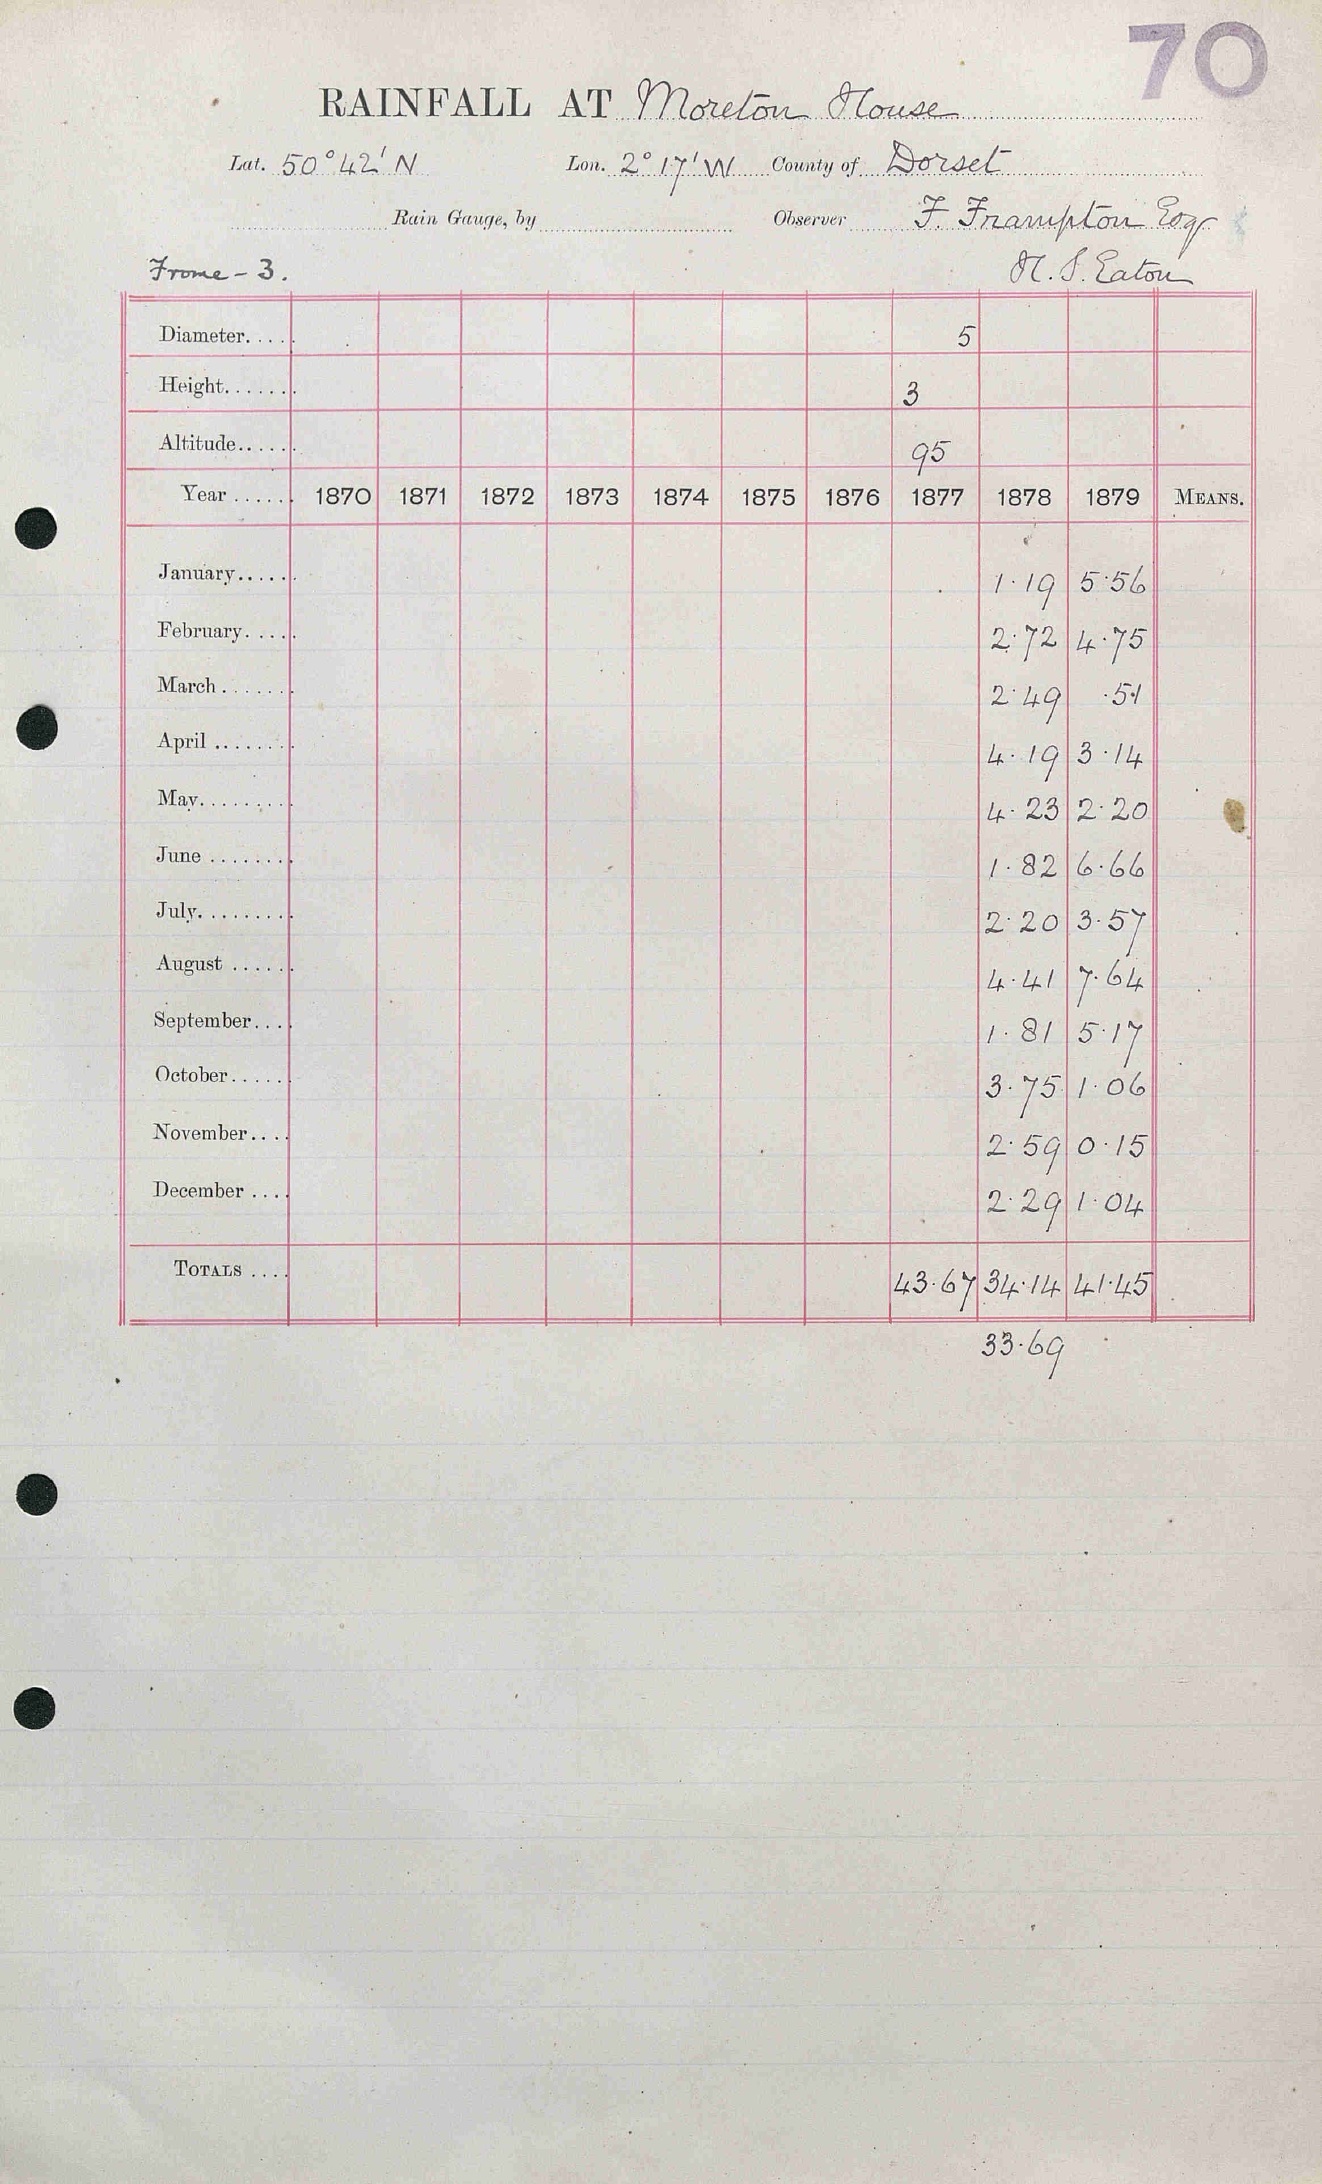 70
RAINFALL AT Moreton House
Lat. 50°42'N Lon. 2°17'W County of Dorset
Rain Gauge, by Observer F. Frampton Esq
Frome - 3. H. S. Eaton
Diameter..... 5
Height....... 3
Altitude...... 95
Year ...... 1870 1871 1872 1873 1874 1875 1876 1877 1878 1879 MEANS.
January...... 1·19 5·56
February..... 2·72 4·75
March ....... 2·49 ·51
April ........ 4·19 3·14
May......... 4·23 2·20
June ........ 1·82 6·66
July......... 2·20 3·57
August ...... 4·41 7·64
September.... 1·81 5·17
October...... 3·75 1·06
November.... 2·59 0·15
December .... 2·29 1·04
TOTALS .... 43·67 34·14 41·45
33·69